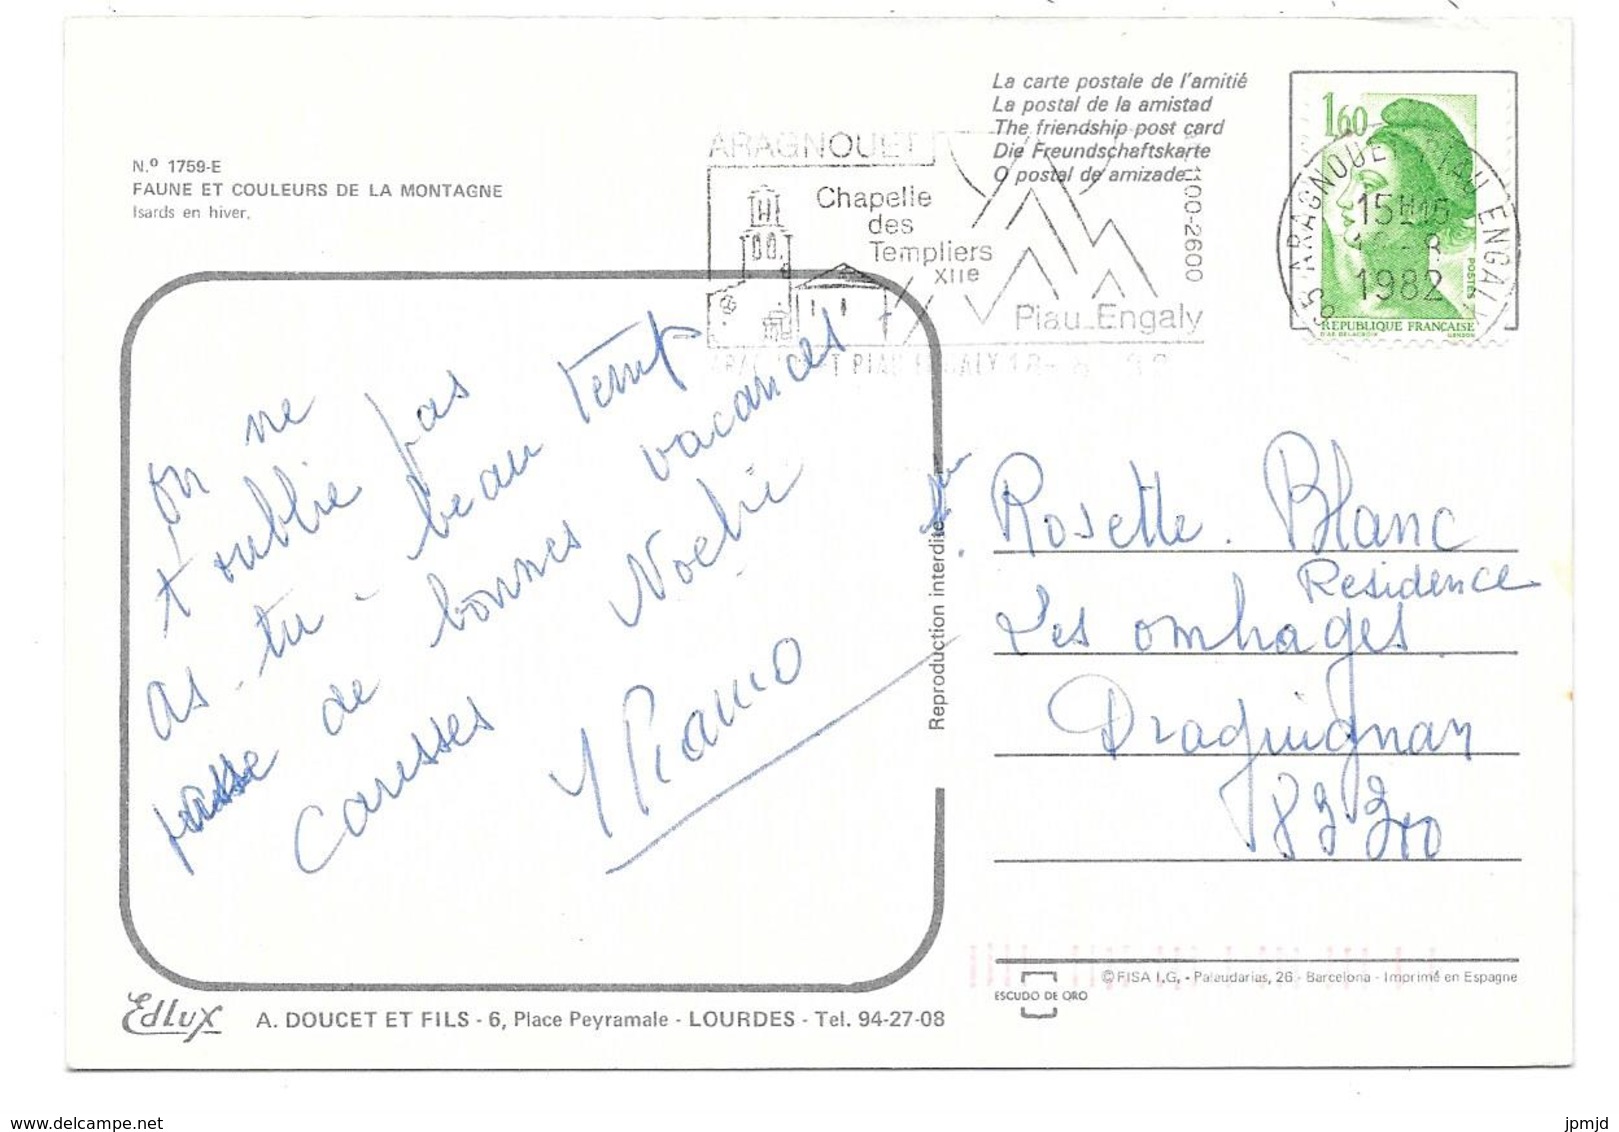 La carte postale de l'amitié
La postal de la amistad
The friendship post card
Die Freundschaftskarte
O postal de amizade
N.º 1759-E
FAUNE ET COULEURS DE LA MONTAGNE
Isards en hiver.
ARAGNOUET
Chapelle
des
Templiers
XIIe
Piau Engaly
1400-2600
1,60
15H15
1982
POSTES
REPUBLIQUE FRANÇAISE
on ne
t'oublie pas
as-tu - beau temps
passe de bonnes vacances
caresses
Rosette Blanc
Residence
Les ombrages
Draguignan
83300
Reproduction interdite
©FISA I.G, - Palaudarias, 26 - Barcelona - Imprimé en Espagne
ESCUDO DE ORO
EdLux
A. DOUCET ET FILS - 6, Place Peyramale - LOURDES - Tel. 94-27-08
www.delcampe.net
jpmjd